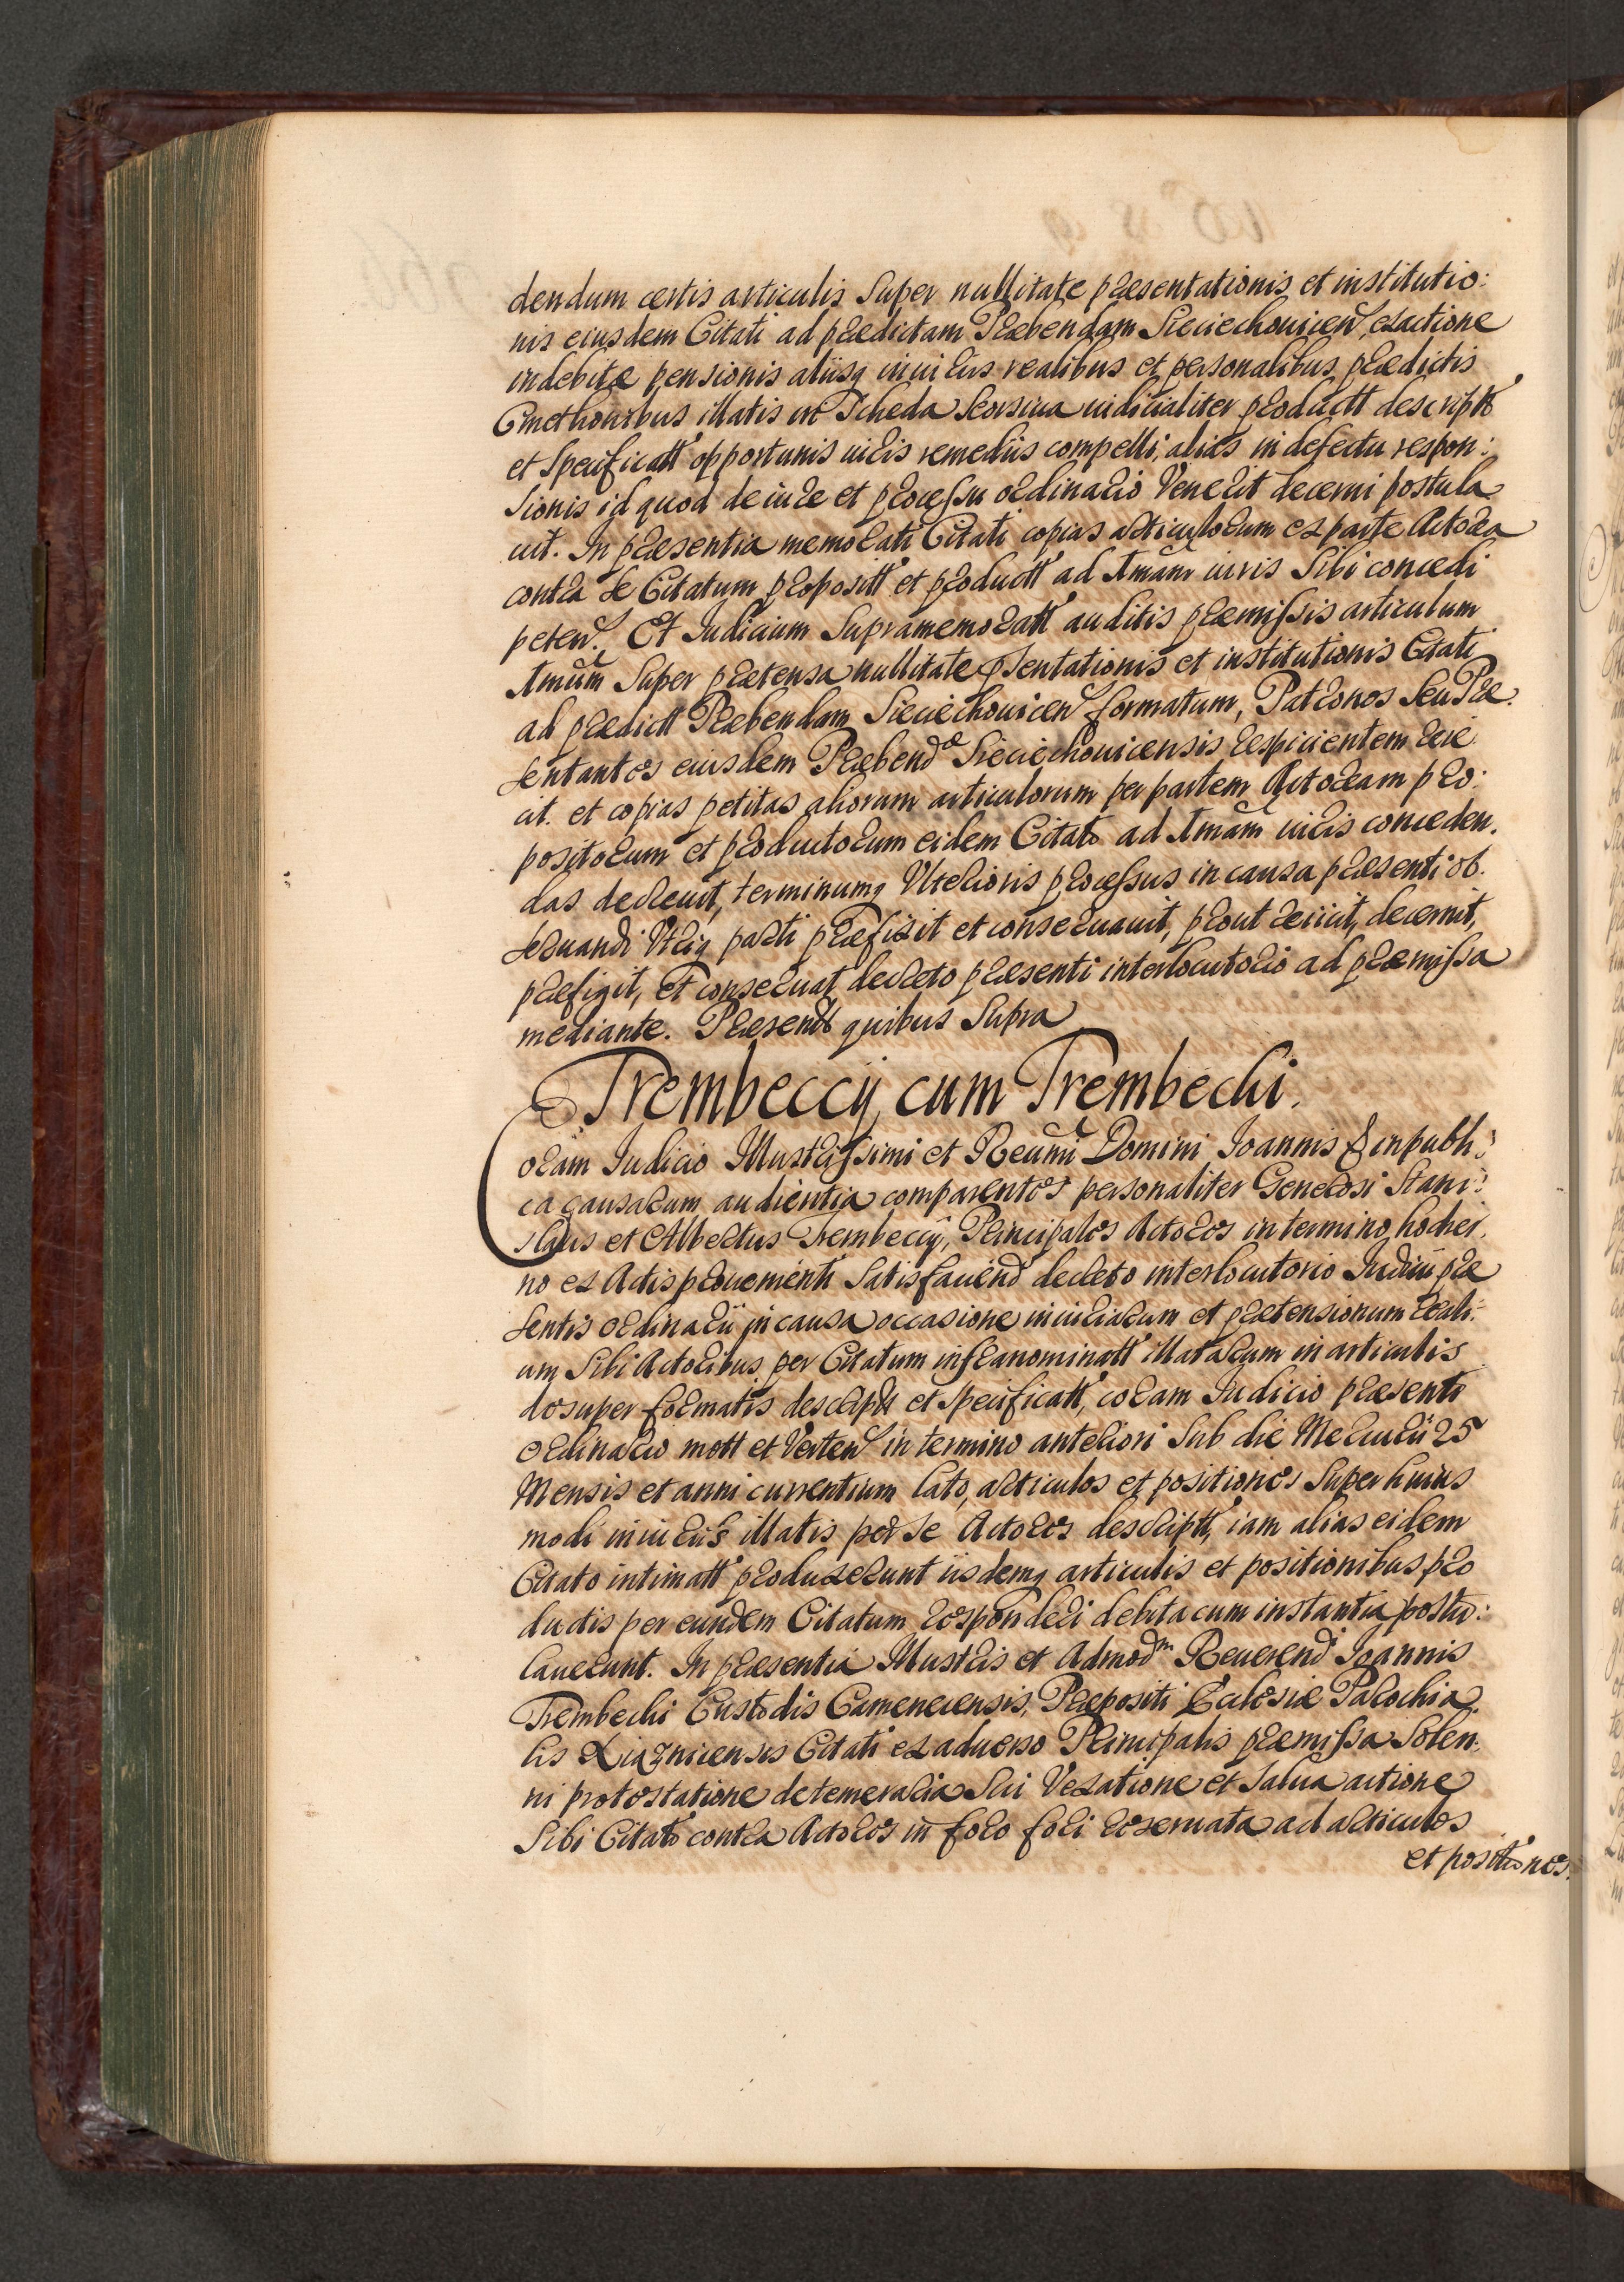 dendum certis articulis super nullitate præsentationis et institutio:
nis eiusdem Citati ad prædictam Præbendam Sieciechouicen, exactione
indebitæ pensionis aliisq iniuriis realibus et personalibus prædictis
Cmethonibus illatis in Scheda seorsiua iudicialiter productt descriptt
et specificatt opportunis iuris remediis compelli, alias in defectu respon:
sionis id quod de iure et processu ordinario venerit decerni postula
uit. In præsentia memorati Citati copias articulorum ex parte Actorea
contra se Citatum propositt et productt ad Amam iuris sibi concedi
peten. Et Iudicium supramemoratt auditis præmissis articulum
Amum super prætensa nullitate pſentationis et institutionis Citati
ad prædictt Præbendam Sieciechouicen formatum, Patronos seu Præ:
sentantes eiusdem Præbendæ Sieciechouicensis respicientem reie
cit. et copias petitas aliorum articulorum per partem Actoream pro:
positorum et productorum eidem Citato ad Amam iuris conceden.
das decreuit, terminumq Vlterioris processus in causa præsenti ob.
seruandi Vtriq parti præfixit et conseruauit, prout reiicit, decernit,
præfigit, et conseruat decreto præsenti interlocutorio ad præmissa
mediante. Præsentt quibus supra
Trembeccij cum Trembecki.
oram Iudicio Illustrissimi et Reumi Domini Ioannis & in publi:
ca causarum audientia comparentes personaliter Generosi Stani:
slaus et Albertus Trembeccij, Principales Actores in termino hodier.
no ex Actis proueniénti satisfaciend decreto interlocutorio Iudicii præ
sentis ordinarii in causa occasione iniuriarum et prætensionum reali:
um sibi Actoribus per Citatum infranominatt illatarum in articulis
desuper formatis descriptt et specificatt, coram Iudicio præsenti
ordinario mott et Verten in termino anteriori sub die Mercurii 25
Mensis et anni currentium lato, articulos et positiones super huius
modi iniuriis illatis per se Actores descriptt, iam alias eidem
Citato intimatt produxerunt iisdemq articulis et positionibus pro
ductis per eundem Citatum responderi debita cum instantia postu:
lauerunt. In præsentia Illustris et Admodm Reuerend Ioannis
Trembecki Custodis Camenecensis, Præpositi Ecclesiæ Parochia
lis Xiąznicensis Citati ex aduerso Principalis præmissa solen:
ni protestatione de temeraria sui Vexatione et salua actione
sibi Citato contra Actores in foro fori reseruata ad articulos
et positiones.